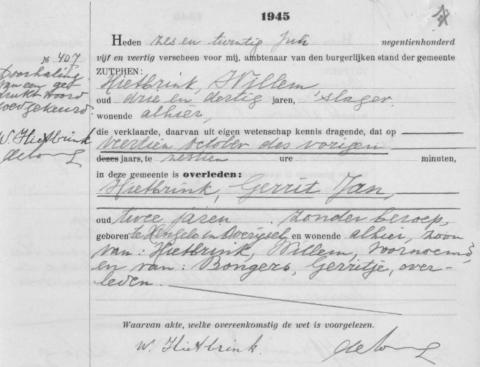 1945
Heden zes en twintig Juli negentienhonderd
vijf en veertig verscheen voor mij, ambtenaar van den burgerlijken stand der gemeente
ZUTPHEN:
Hietbrink, Willem,
oud drie en dertig jaren, slager,
wonende alhier,
die verklaarde, daarvan uit eigen wetenschap kennis dragende, dat op
veertien October des vorigen
dezes jaars, te zestien ure minuten,
in deze gemeente is overleden:
Hietbrink, Gerrit Jan,
oud twee jaren zonder beroep,
geboren te Hengelo in Overijsel en wonende alhier, zoon
van: Hietbrink, Willem, voornoemd,
en van: Bongers, Gerritje, over-
leden.
Waarvan akte, welke overeenkomstig de wet is voorgelezen.
W. Hietbrink.
№ 407
Doorhaling
van een ge-
drukt woord
goedgekeurd.
W. Hietbrink